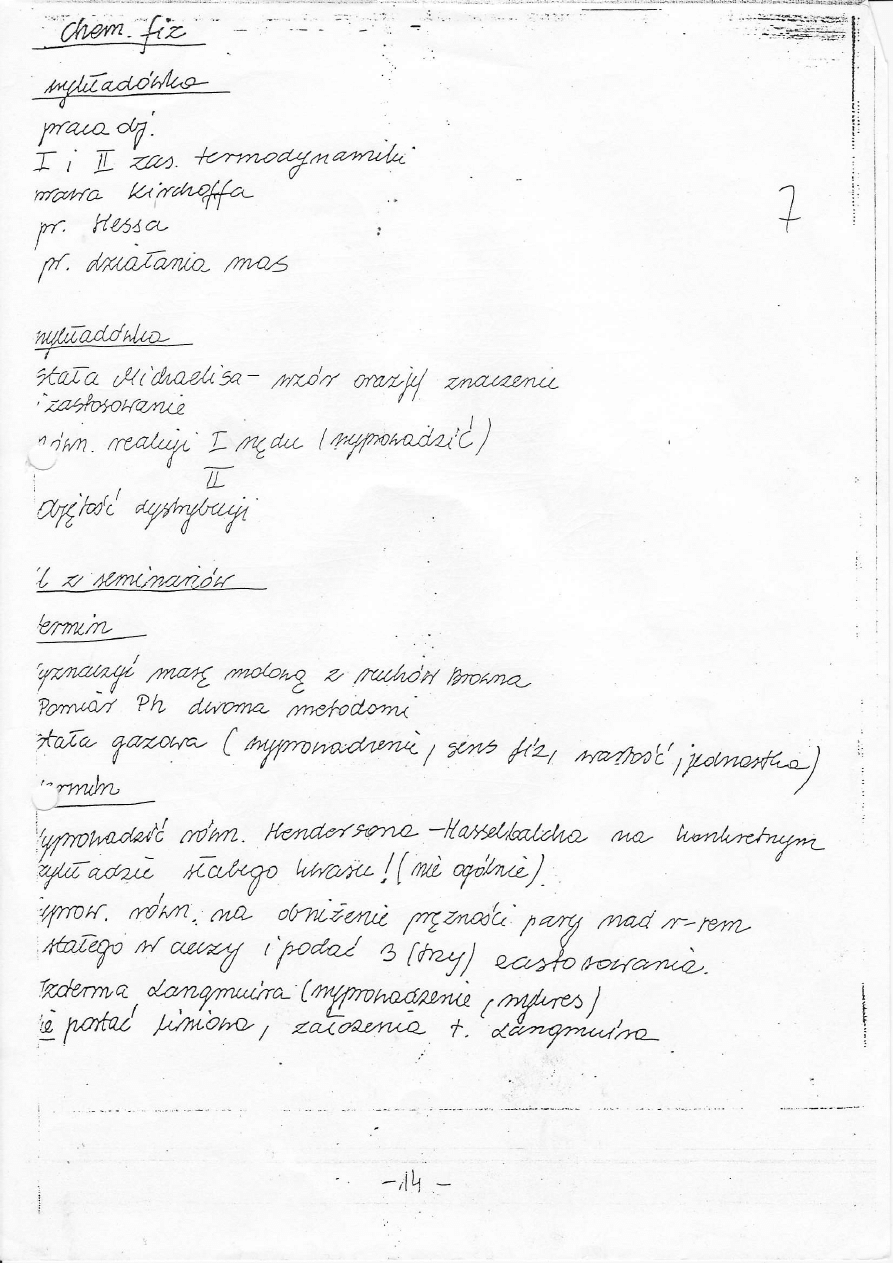 Chem. fiz
wykładówka
praca obj.
I i II zas. termodynamiki
prawa Kirchoffa
pr. Hessa
7
pr. działania mas
wykładówka
stała Michaelisa - wzór oraz jej znaczenie
i zastosowanie
równ. reakcji I rzędu (wyprowadzić)
II
objętość dystrybucji
z seminariów
termin
yznaczyć masę molową z ruchów Browna
Pomiar Ph dwoma metodami
stała gazowa (wyprowadzenie, sens fiz, wartość, jednostka)
rmin
yprowadzić równ. Hendersona - Hasselbalcha na konkretnym
zykładzie słabego kwasu! (nie ogólnie)
yprow. równ. na obniżenie prężności pary nad r-rem
stałego w cieczy i podać 3 (trzy) zastosowania.
Izoterma Langmuira (wyprowadzenie, wykres)
postać liniowa, założenia t. Langmuira
- 14 -